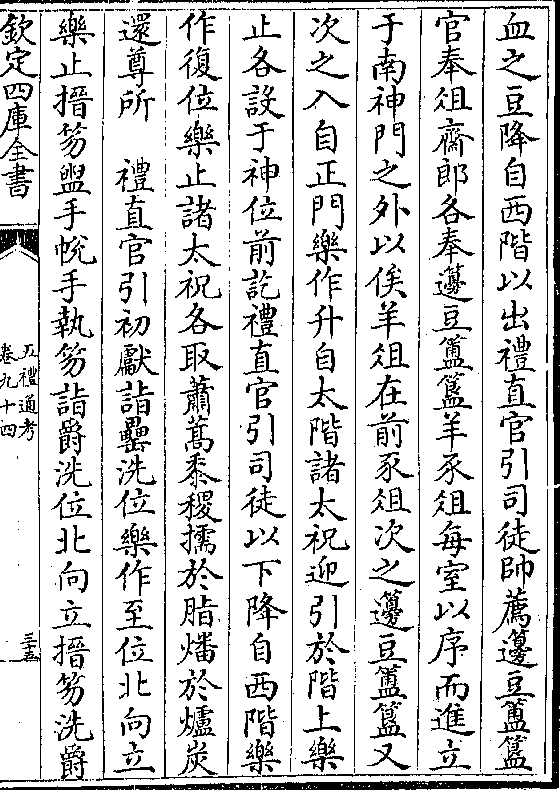 血之豆降自西階以出禮直官引司徒帥薦籩豆簠簋
官奉俎齋郎各奉籩豆簠簋羊豕俎每室以序而進立
于南神門之外以俟羊俎在前豕俎次之籩豆簠簋又
次之入自正門樂作升自太階諸太祝迎引於階上樂
止各設于神位前訖禮直官引司徒以下降自西階樂
作復位樂止諸太祝各取蕭蒿黍稷擩於脂燔於爐炭
還尊所　禮直官引初獻詣罍洗位樂作至位北向立
樂止搢笏盥手帨手執笏詣爵洗位北向立搢笏洗爵
欽定四庫全書
五禮通考
卷九十四
三十五